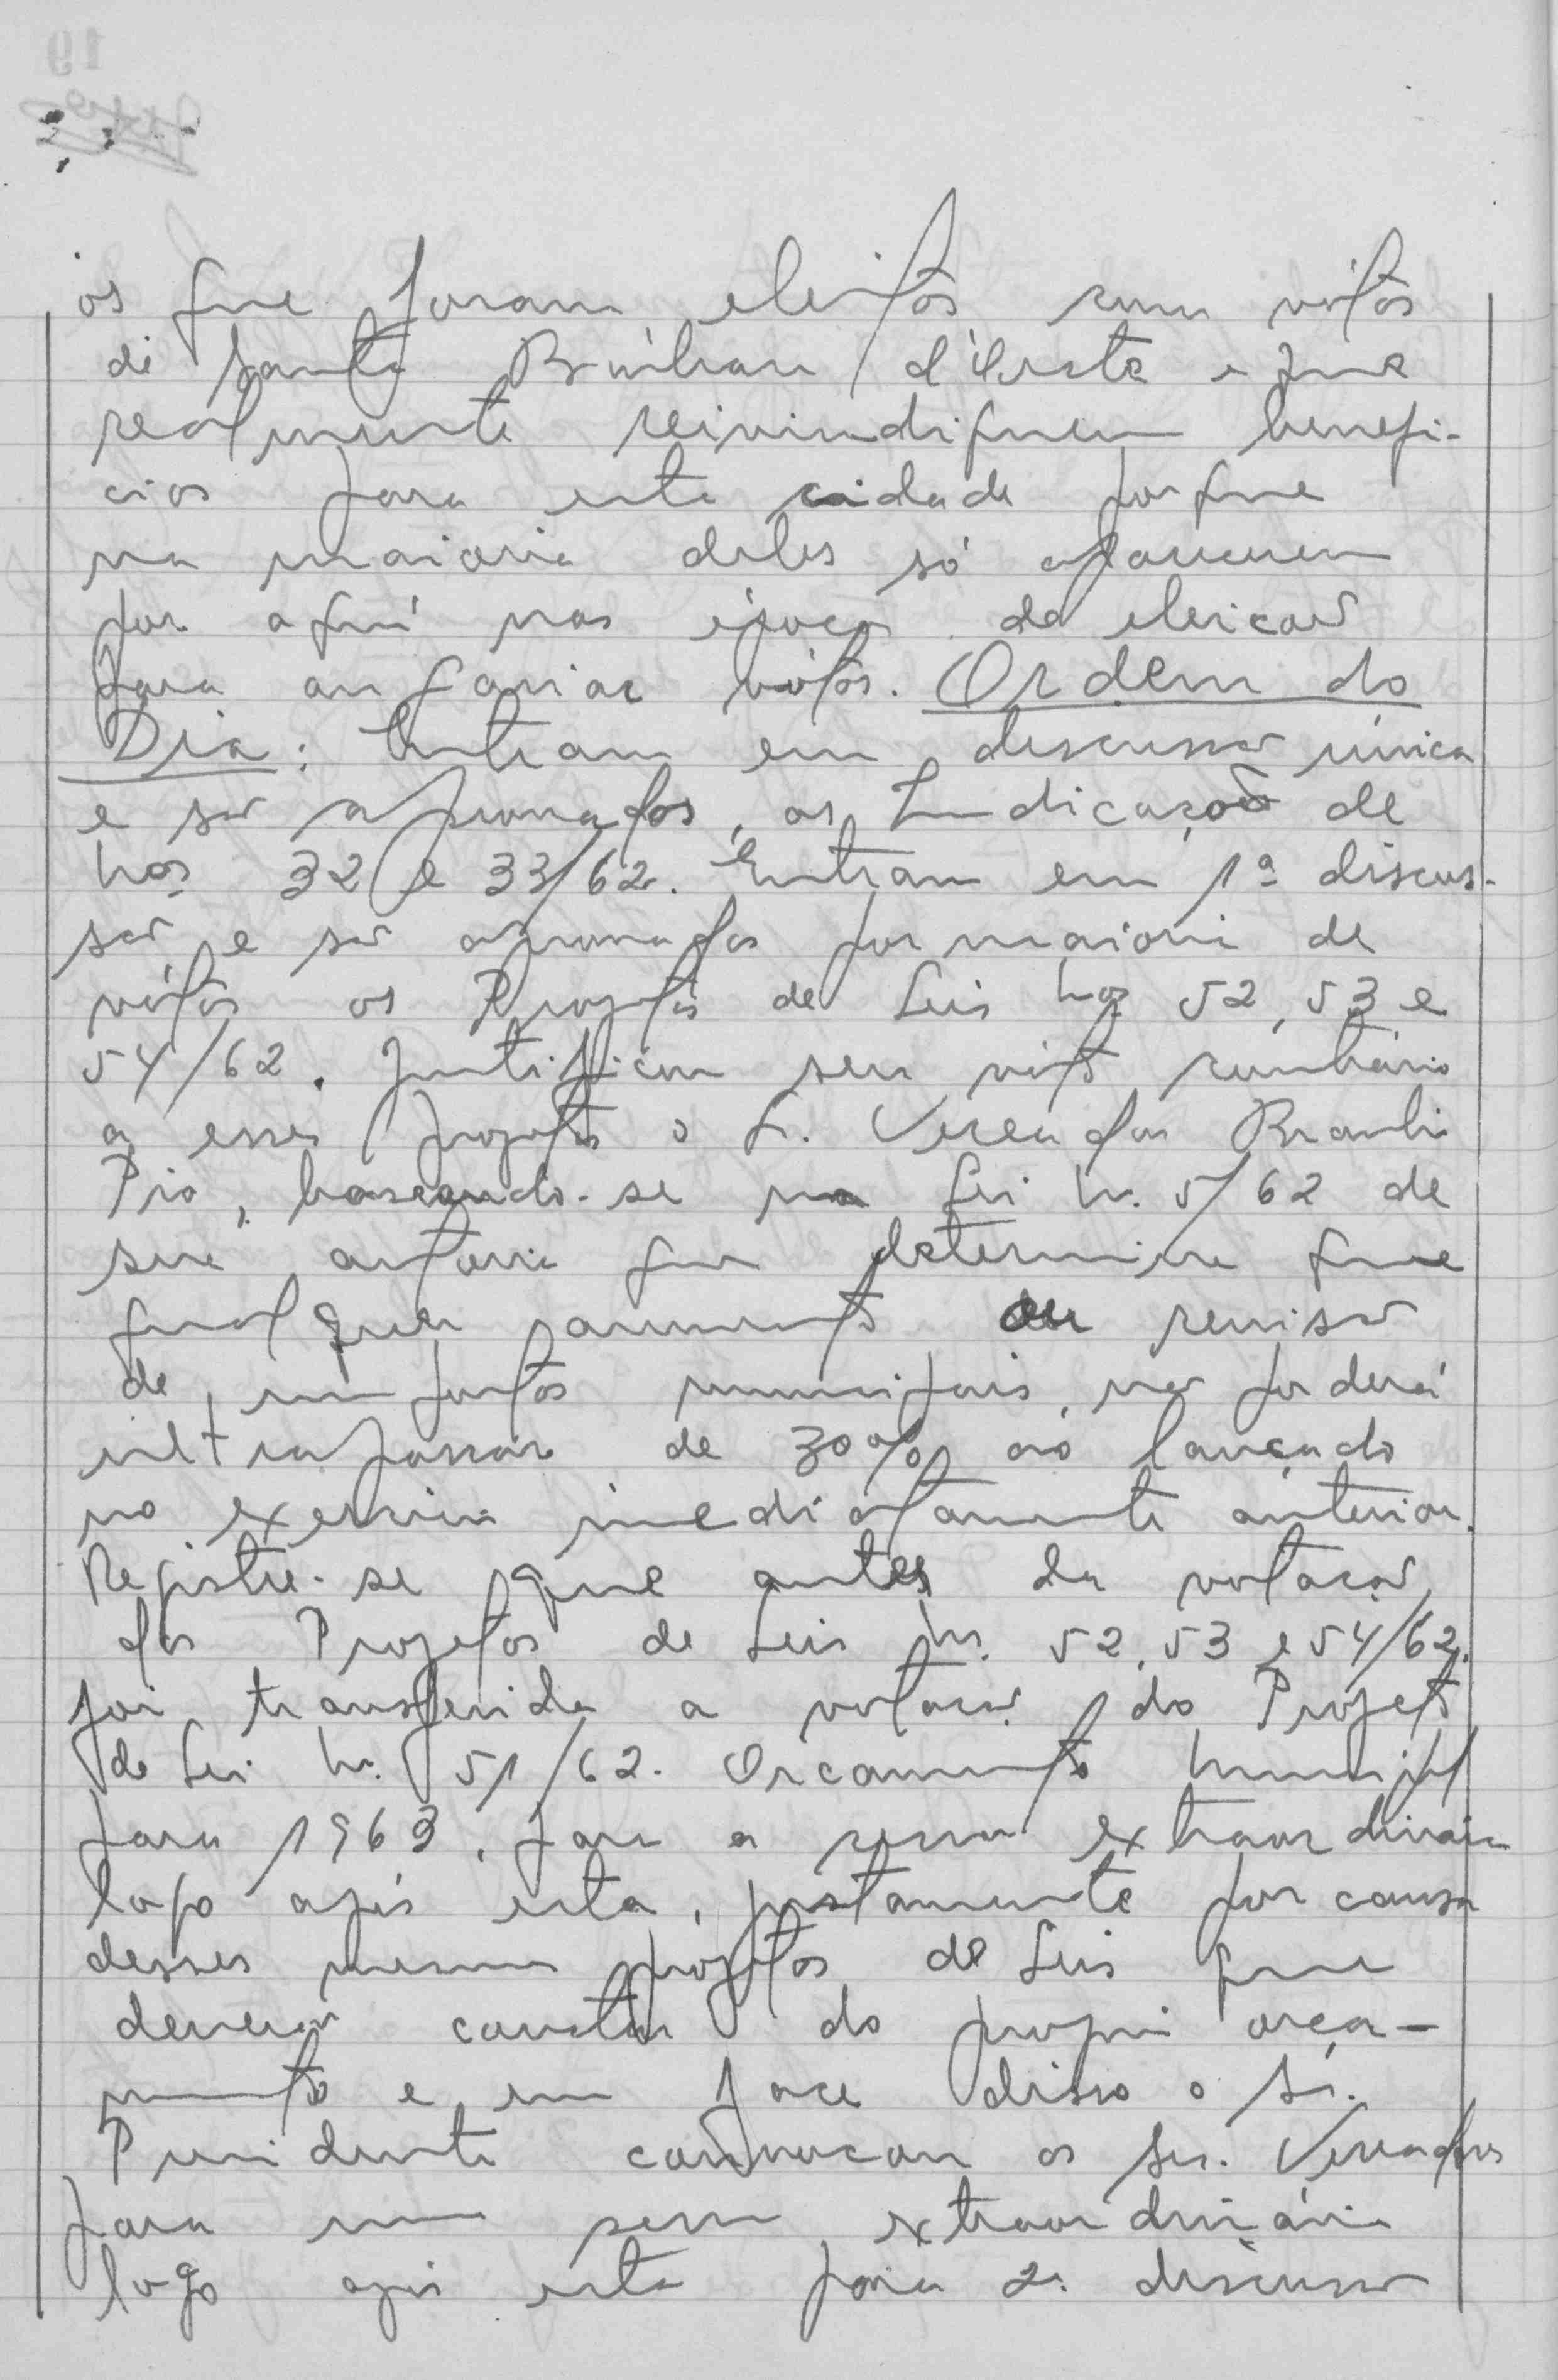 os que foram eleitos com vótos
de Santa Bárbara d'Oeste e que
realmente reivindiquem benefi-
cios para esta cidade porque
na maioria deles só aparecem
por aquí nas época da eleicao
para anfariar vótos. Ordem do
Dia: Entram em discussao única
e sao aprovados, as Indicaçoes de
nos 32 e 33/62. Entram em 1ª discus-
sao e sao aprovados por maioria de
vótos os Projetos de Leis nos 52, 53 e
54/62. Justificou seu voto contrário
a esses projetos o Sr. Vereador Braulio
Pio, baseando-se na Lei n. 5/62 de
sua autoria que determina que
qualquer aumento ou revisao
de impostos municipais, nao poderá
ultrapassar de 30% ao lançado
no exercicio imediatamente anterior.
Registre-se que antes da votacao
dos Projetos de Leis ns. 52, 53 e 54/62.
foi transferida a votacao do Projeto
de Lei n. 51/62. Orcamento Municipal
para 1963, para a sessao extraordinária
logo após esta, justamente por causa
desses mesmos projetos de Leis que
deverao constar do proprio orça-
mento e em face disso o Sr.
Presidente convocou os Srs. Vereadores
para uma sessao extraordinária
logo após esta para 2ª discussao